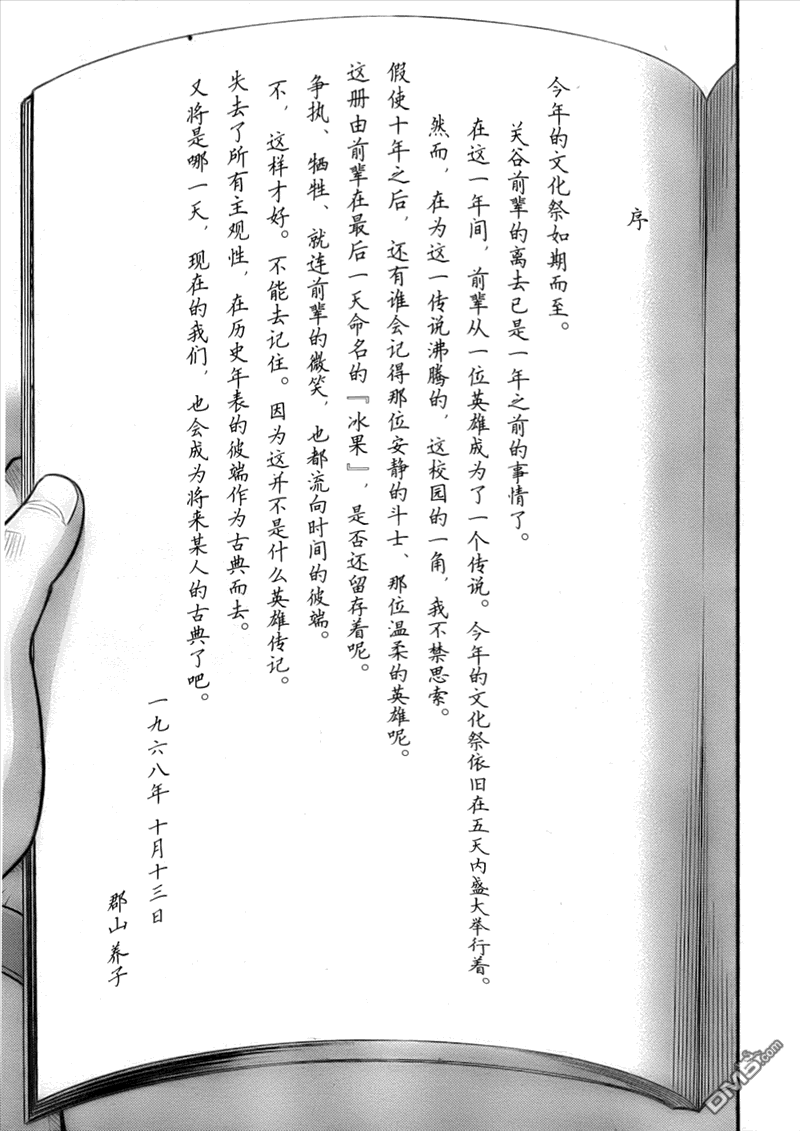 序
今年的文化祭如期而至。
关谷前辈的离去已是一年之前的事情了。
在这一年间，前辈从一位英雄成为了一个传说。今年的文化祭依旧在五天内盛大举行着。
然而，在为这一传说沸腾的，这校园的一角，我不禁思索。
假使十年之后，还有谁会记得那位安静的斗士、那位温柔的英雄呢。
这册由前辈在最后一天命名的『冰果』，是否还留存着呢。
争执、牺牲、就连前辈的微笑，也都流向时间的彼端。
不，这样才好。不能去记住。因为这并不是什么英雄传记。
失去了所有主观性，在历史年表的彼端作为古典而去。
又将是哪一天，现在的我们，也会成为将来某人的古典了吧。
一九六八年 十月十三日
郡山 养子
DM5.com